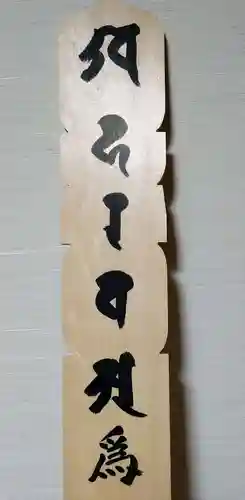 𑖏𑖮𑖨𑖪𑖀為